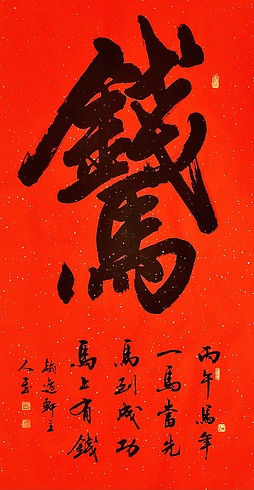 丙午馬年
一馬當先
馬到成功
馬上有錢
軒主
人